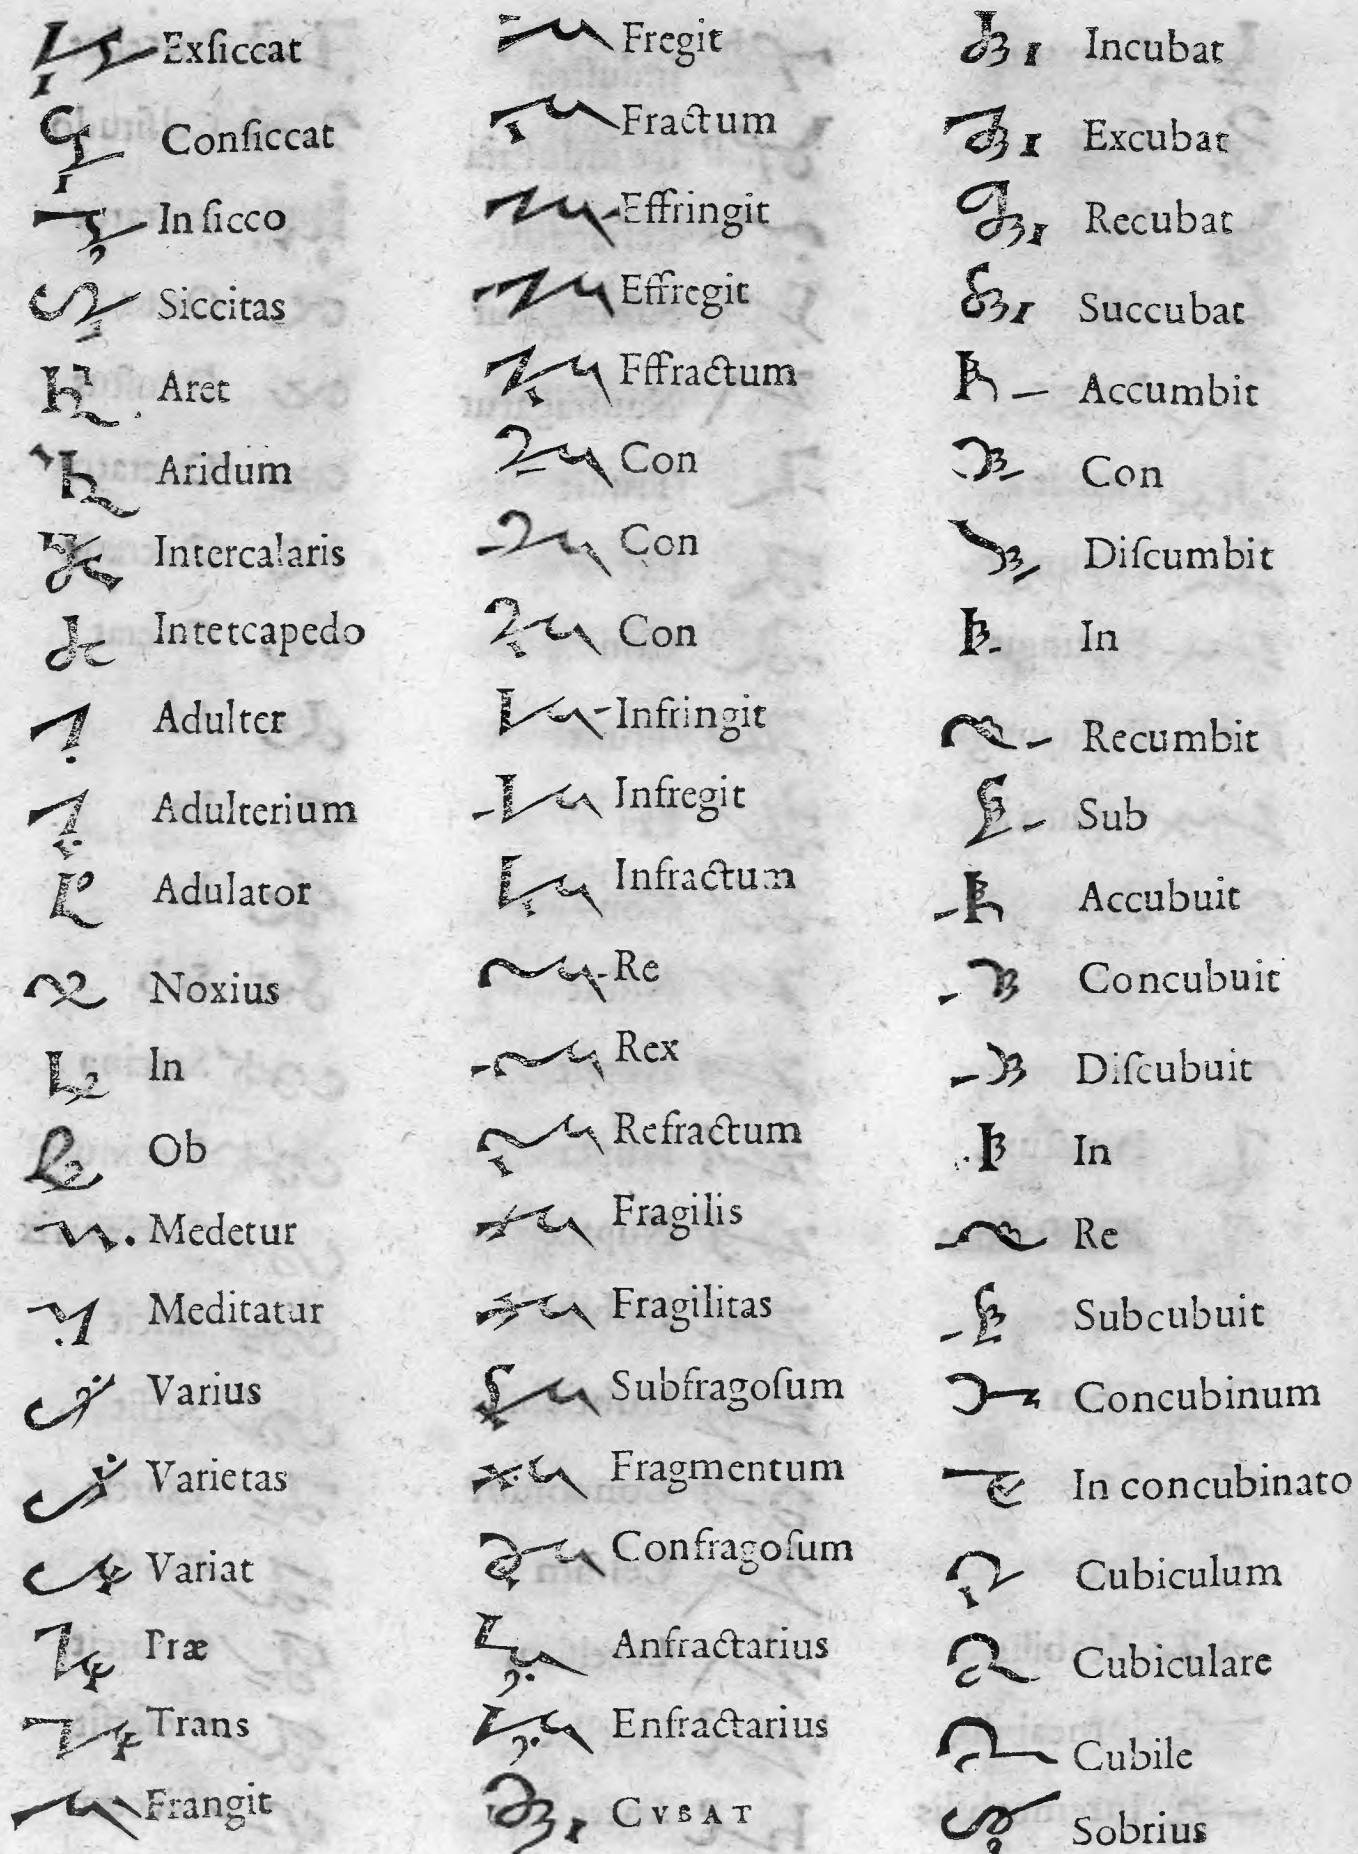 Exſiccat
Conſiccat
In ſicco
Siccitas
Aret
Aridum
Intercalaris
Intetcapedo
Adulter
Adulterium
Adulator
Noxius
In
Ob
Medetur
Meditatur
Varius
Varietas
Variat
Præ
Trans
Frangit
Fregit
Fractum
Effringit
Effregit
Fffractum
Con
Con
Con
Infringit
Infregit
Infractum
Re
Rex
Refractum
Fragilis
Fragilitas
Subfragoſum
Fragmentum
Confragoſum
Anfractarius
Enfractarius
CVBAT
Incubat
Excubat
Recubat
Succubat
Accumbit
Con
Diſcumbit
In
Recumbit
Sub
Accubuit
Concubuit
Diſcubuit
In
Re
Subcubuit
Concubinum
In concubinato
Cubiculum
Cubiculare
Cubile
Sobrius